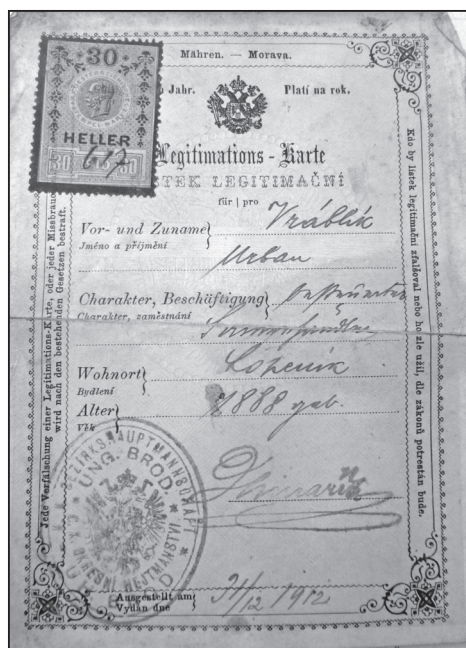 Mähren. — Morava.
30
HELLER
30 30
Jahr.
Platí na rok.
Legitimations-Karte
LEGITIMAČNÍ
für | pro
Vor- und Zuname
Jméno a příjmění
Vráblík
Urban
Charakter, Beschäftigung
Charakter, zaměstnání
Wohnort
Bydlení
Lopeník
Alter
Věk
1888 geb.
BEZIRKSHAUPTMANNSCHAFT
UNG. BROD
C. K. OKRESNÍ HEJTMANSTVÍ
BROD
Ausgestellt am
Vydán dne
31/12 1912
Jede Verfälschung einer Legitimations-Karte, oder jeder Missbrauch
wird nach den bestehenden Gesetzen bestraft.
Kdo by lístek legitimační zfalšoval nebo ho zle užil, dle zákonů potrestán bude.